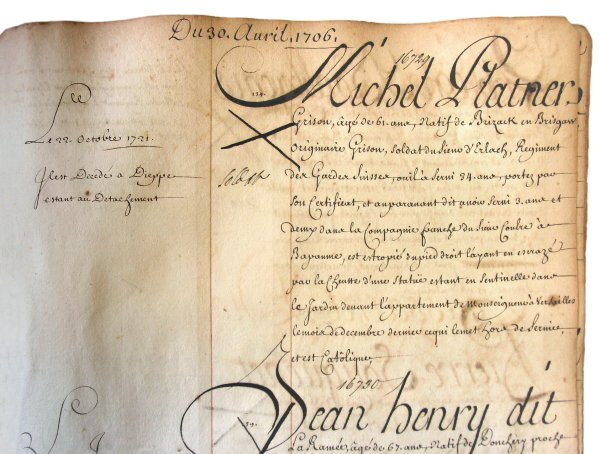 Du 30. Avril. 1706.
16729
Michel Platner,
Grison, âgé de 61. ans, Natif de Brizack en Brisgaw
Originaire Grison, soldat du Sieur d'Erlach, Regiment
des Gardes Suisses, ou il à servi 34. ans, portez par
son Certificat, et auparavant dit avoir servi 3. ans et
demy dans la Compagnie franche du Sieur Coubre à
Bapaume, est estropié du pied droit l'ayant eu escrazé
par la Cheutte d'une Statuë estant en Sentinelle dans
le Jardin devant l'appartement de Monseigneur à Versailles
le mois de decembre dernier ce qui le met hors de Service,
et est Catolique
Le 22. Octobre 1721.
Il est Decedé a Dieppe
estant au Detachement
16730
Jean henry dit
La Ramée, âgé de 67. ans, Natif de Donchery proche